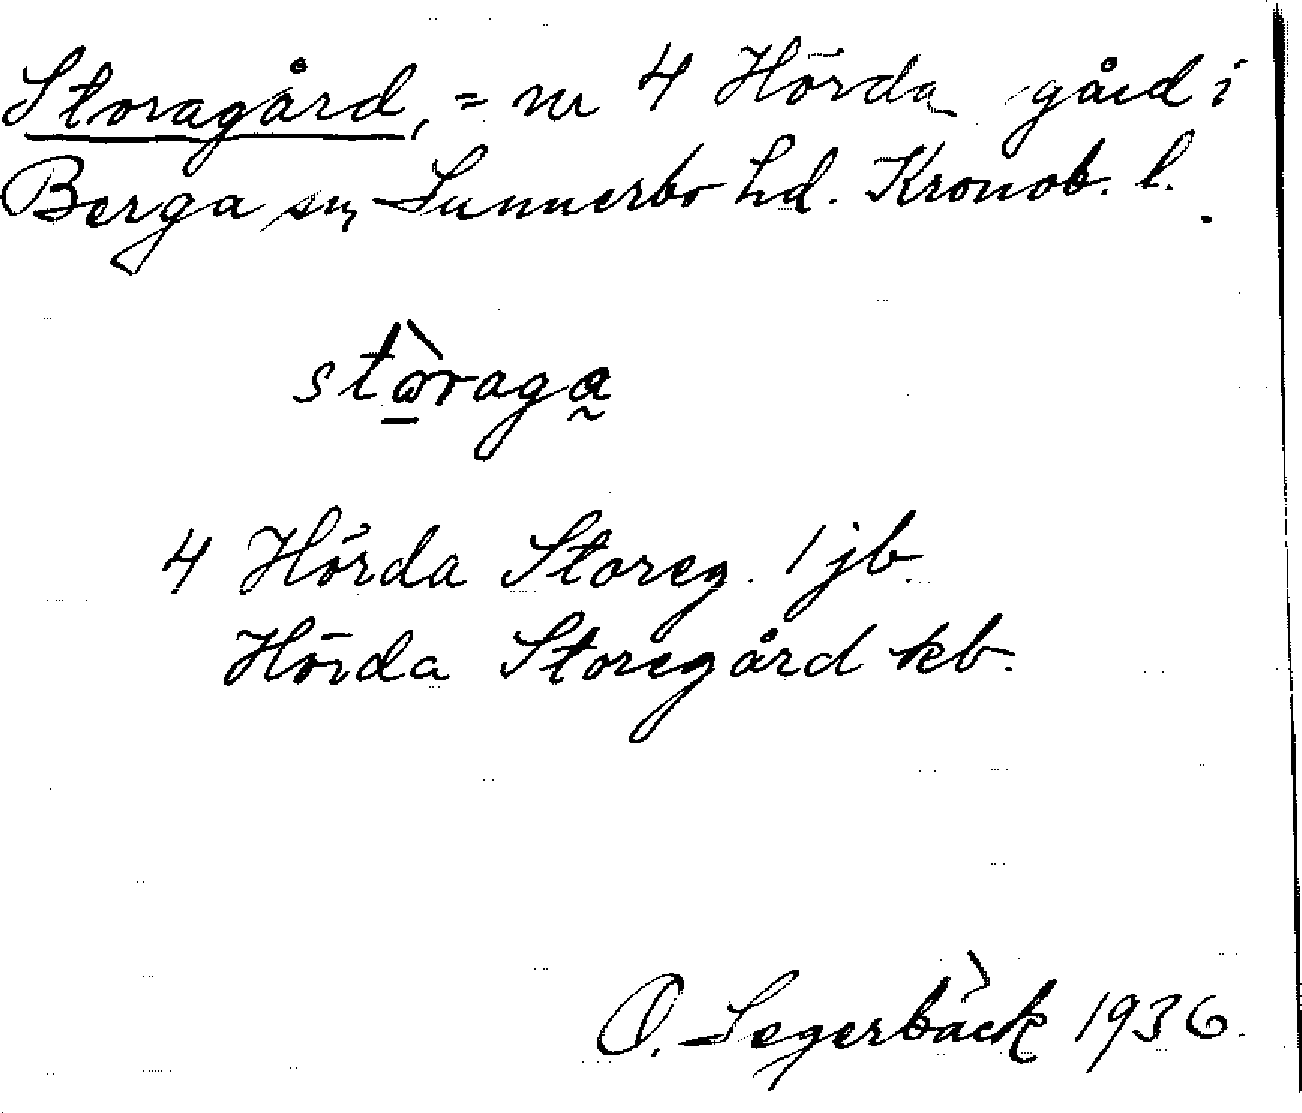 Storagård, = nr 4 Hörda gård i
Berga sn, Sunnerbo hd. Kronob. l.
stòraga
4 Hörda Storeg. 1 jb.
Hörda Storegård kb.
O. Segerbäck 1936.